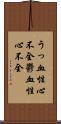 うっ血性心
不全鬱血性
心不全